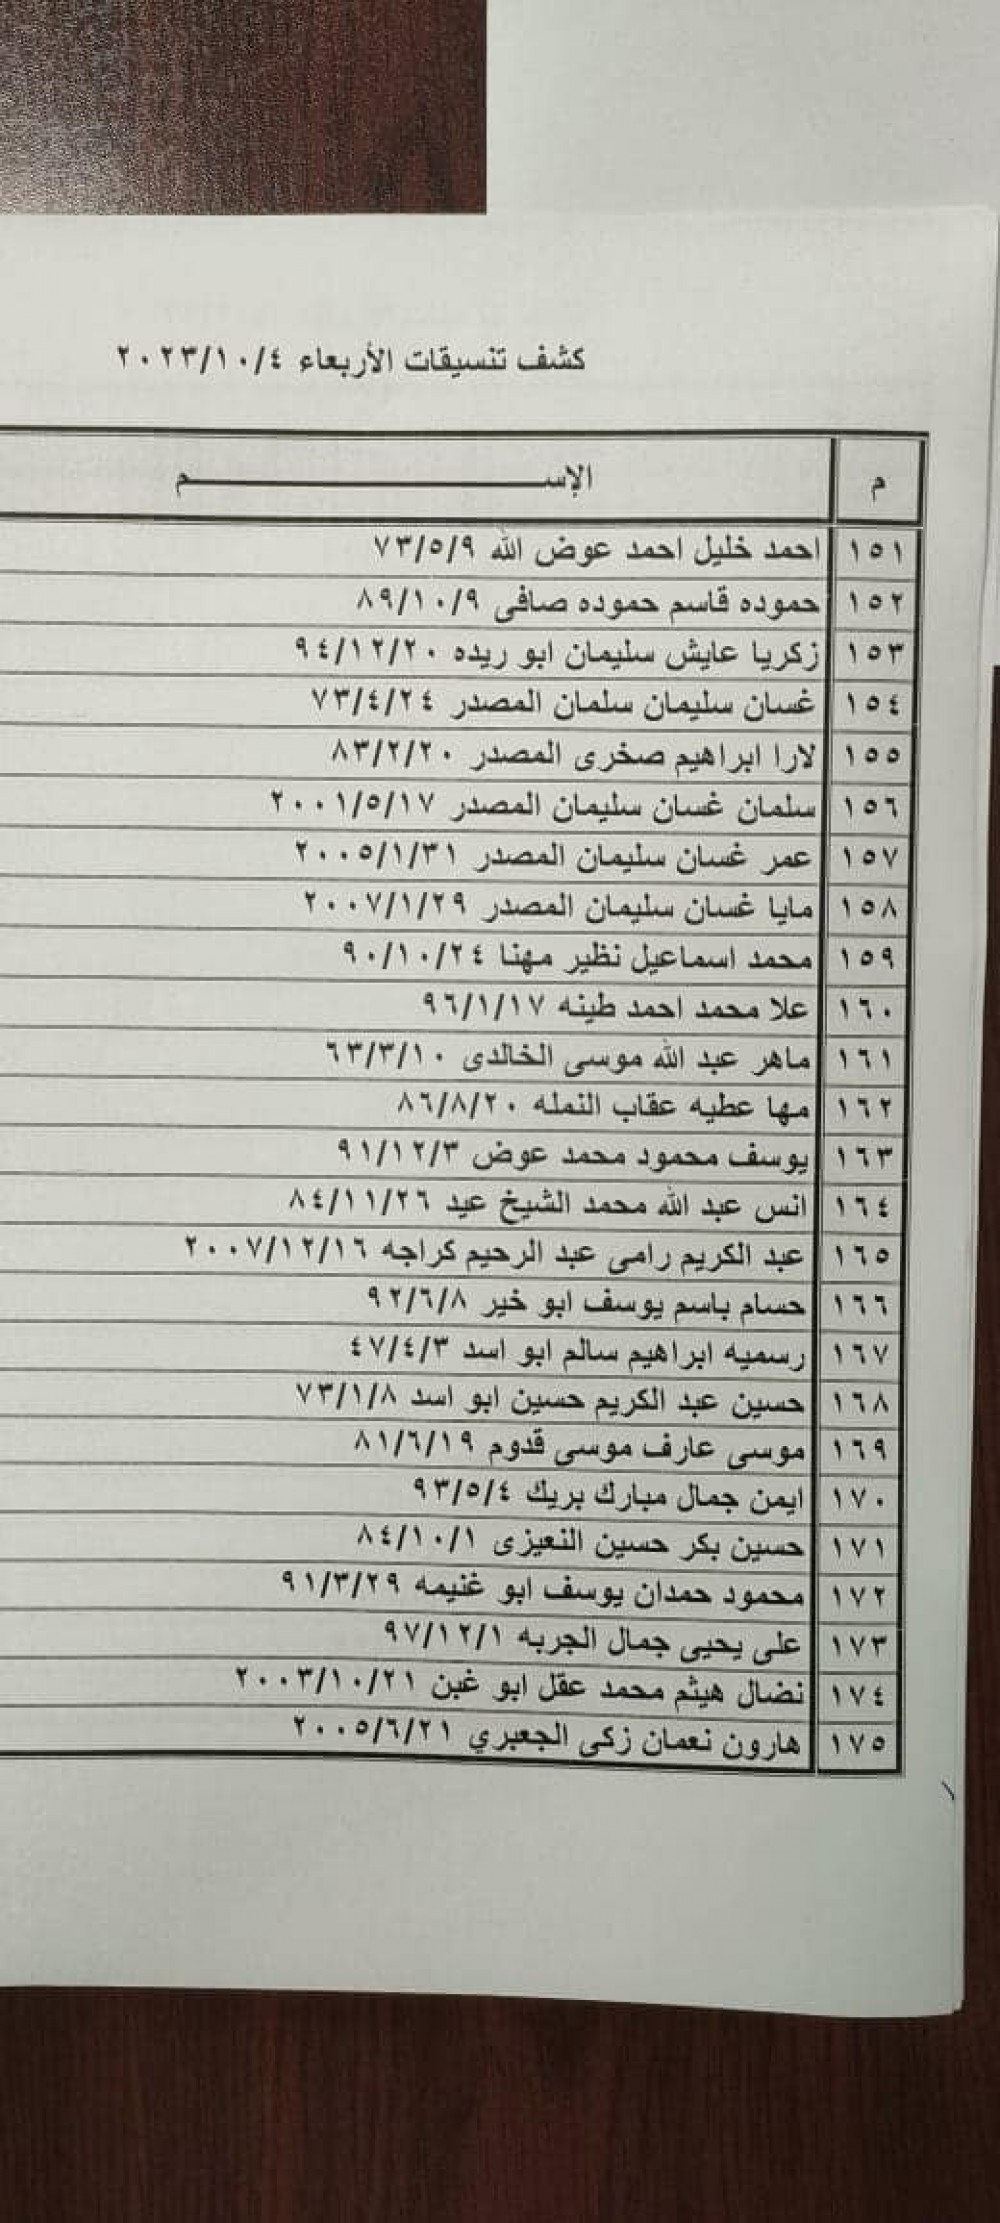 كشف تنسيقات الأربعاء ٢٠٢٣/١٠/٤
م الإســـــــــــــــــم
١٥١ احمد خليل احمد عوض الله ٧٣/٥/٩
١٥٢ حموده قاسم حموده صافى ٨٩/١٠/٩
١٥٣ زكريا عايش سليمان ابو ريده ٩٤/١٢/٢٠
١٥٤ غسان سليمان سلمان المصدر ٧٣/٤/٢٤
١٥٥ لارا ابراهيم صخرى المصدر ٨٣/٢/٢٠
١٥٦ سلمان غسان سليمان المصدر ٢٠٠١/٥/١٧
١٥٧ عمر غسان سليمان المصدر ٢٠٠٥/١/٣١
١٥٨ مايا غسان سليمان المصدر ٢٠٠٧/١/٢٩
١٥٩ محمد اسماعيل نظير مهنا ٩٠/١٠/٢٤
١٦٠ علا محمد احمد طينه ٩٦/١/١٧
١٦١ ماهر عبد الله موسى الخالدى ٦٣/٣/١٠
١٦٢ مها عطيه عقاب النمله ٨٦/٨/٢٠
١٦٣ يوسف محمود محمد عوض ٩١/١٢/٣
١٦٤ انس عبد الله محمد الشيخ عيد ٨٤/١١/٢٦
١٦٥ عبد الكريم رامى عبد الرحيم كراجه ٢٠٠٧/١٢/١٦
١٦٦ حسام باسم يوسف ابو خير ٩٢/٦/٨
١٦٧ رسميه ابراهيم سالم ابو اسد ٤٧/٤/٣
١٦٨ حسين عبد الكريم حسين ابو اسد ٧٣/١/٨
١٦٩ موسى عارف موسى قدوم ٨١/٦/١٩
١٧٠ ايمن جمال مبارك بريك ٩٣/٥/٤
١٧١ حسين بكر حسين النعيزى ٨٤/١٠/١
١٧٢ محمود حمدان يوسف ابو غنيمه ٩١/٣/٢٩
١٧٣ على يحيى جمال الجربه ٩٧/١٢/١
١٧٤ نضال هيثم محمد عقل ابو غبن ٢٠٠٣/١٠/٢١
١٧٥ هارون نعمان زكى الجعبري ٢٠٠٥/٦/٢١